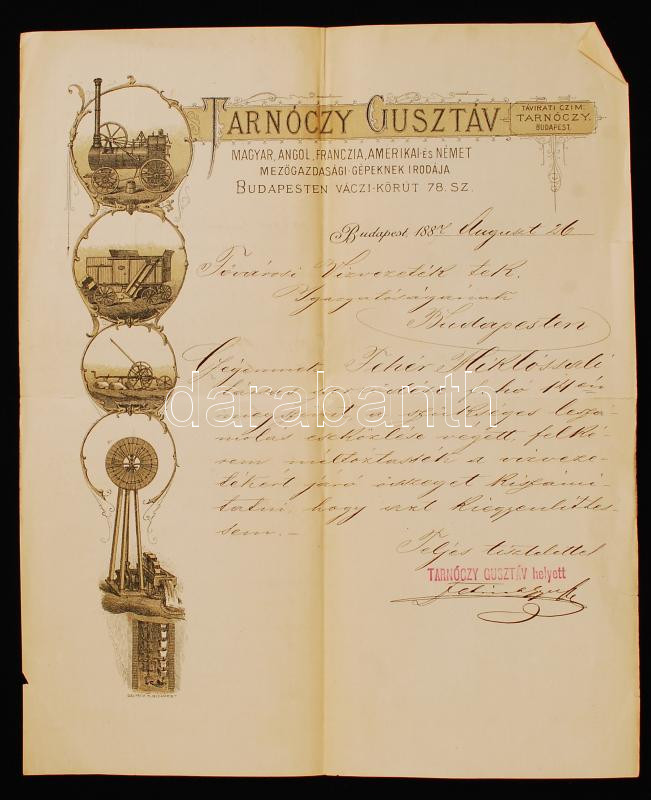 TARNÓCZY GUSZTÁV
TÁVIRATI CZIM:
TARNÓCZY.
BUDAPEST.
MAGYAR, ANGOL, FRANCZIA, AMERIKAI ÉS NÉMET
MEZŐGAZDASÁGI GÉPEKNEK IRODÁJA
BUDAPESTEN VÁCZI-KÖRÚT 78. SZ.
Budapest, 1887 August 26
Fővárosi Vizvezeték tek.
Igazgatóságának
Budapesten
Cégemnek Fehér Miklóssali
folyó hó 14 én
megszünt a szükséges lesza-
molás eszközlése végett, felké-
rem méltóztassék a vizveze-
tékért járó összeget kiszámi-
tatni, hogy azt kiegyenlithes-
sem. –
Teljes tisztelettel
TARNÓCZY GUSZTÁV helyett
darabanth